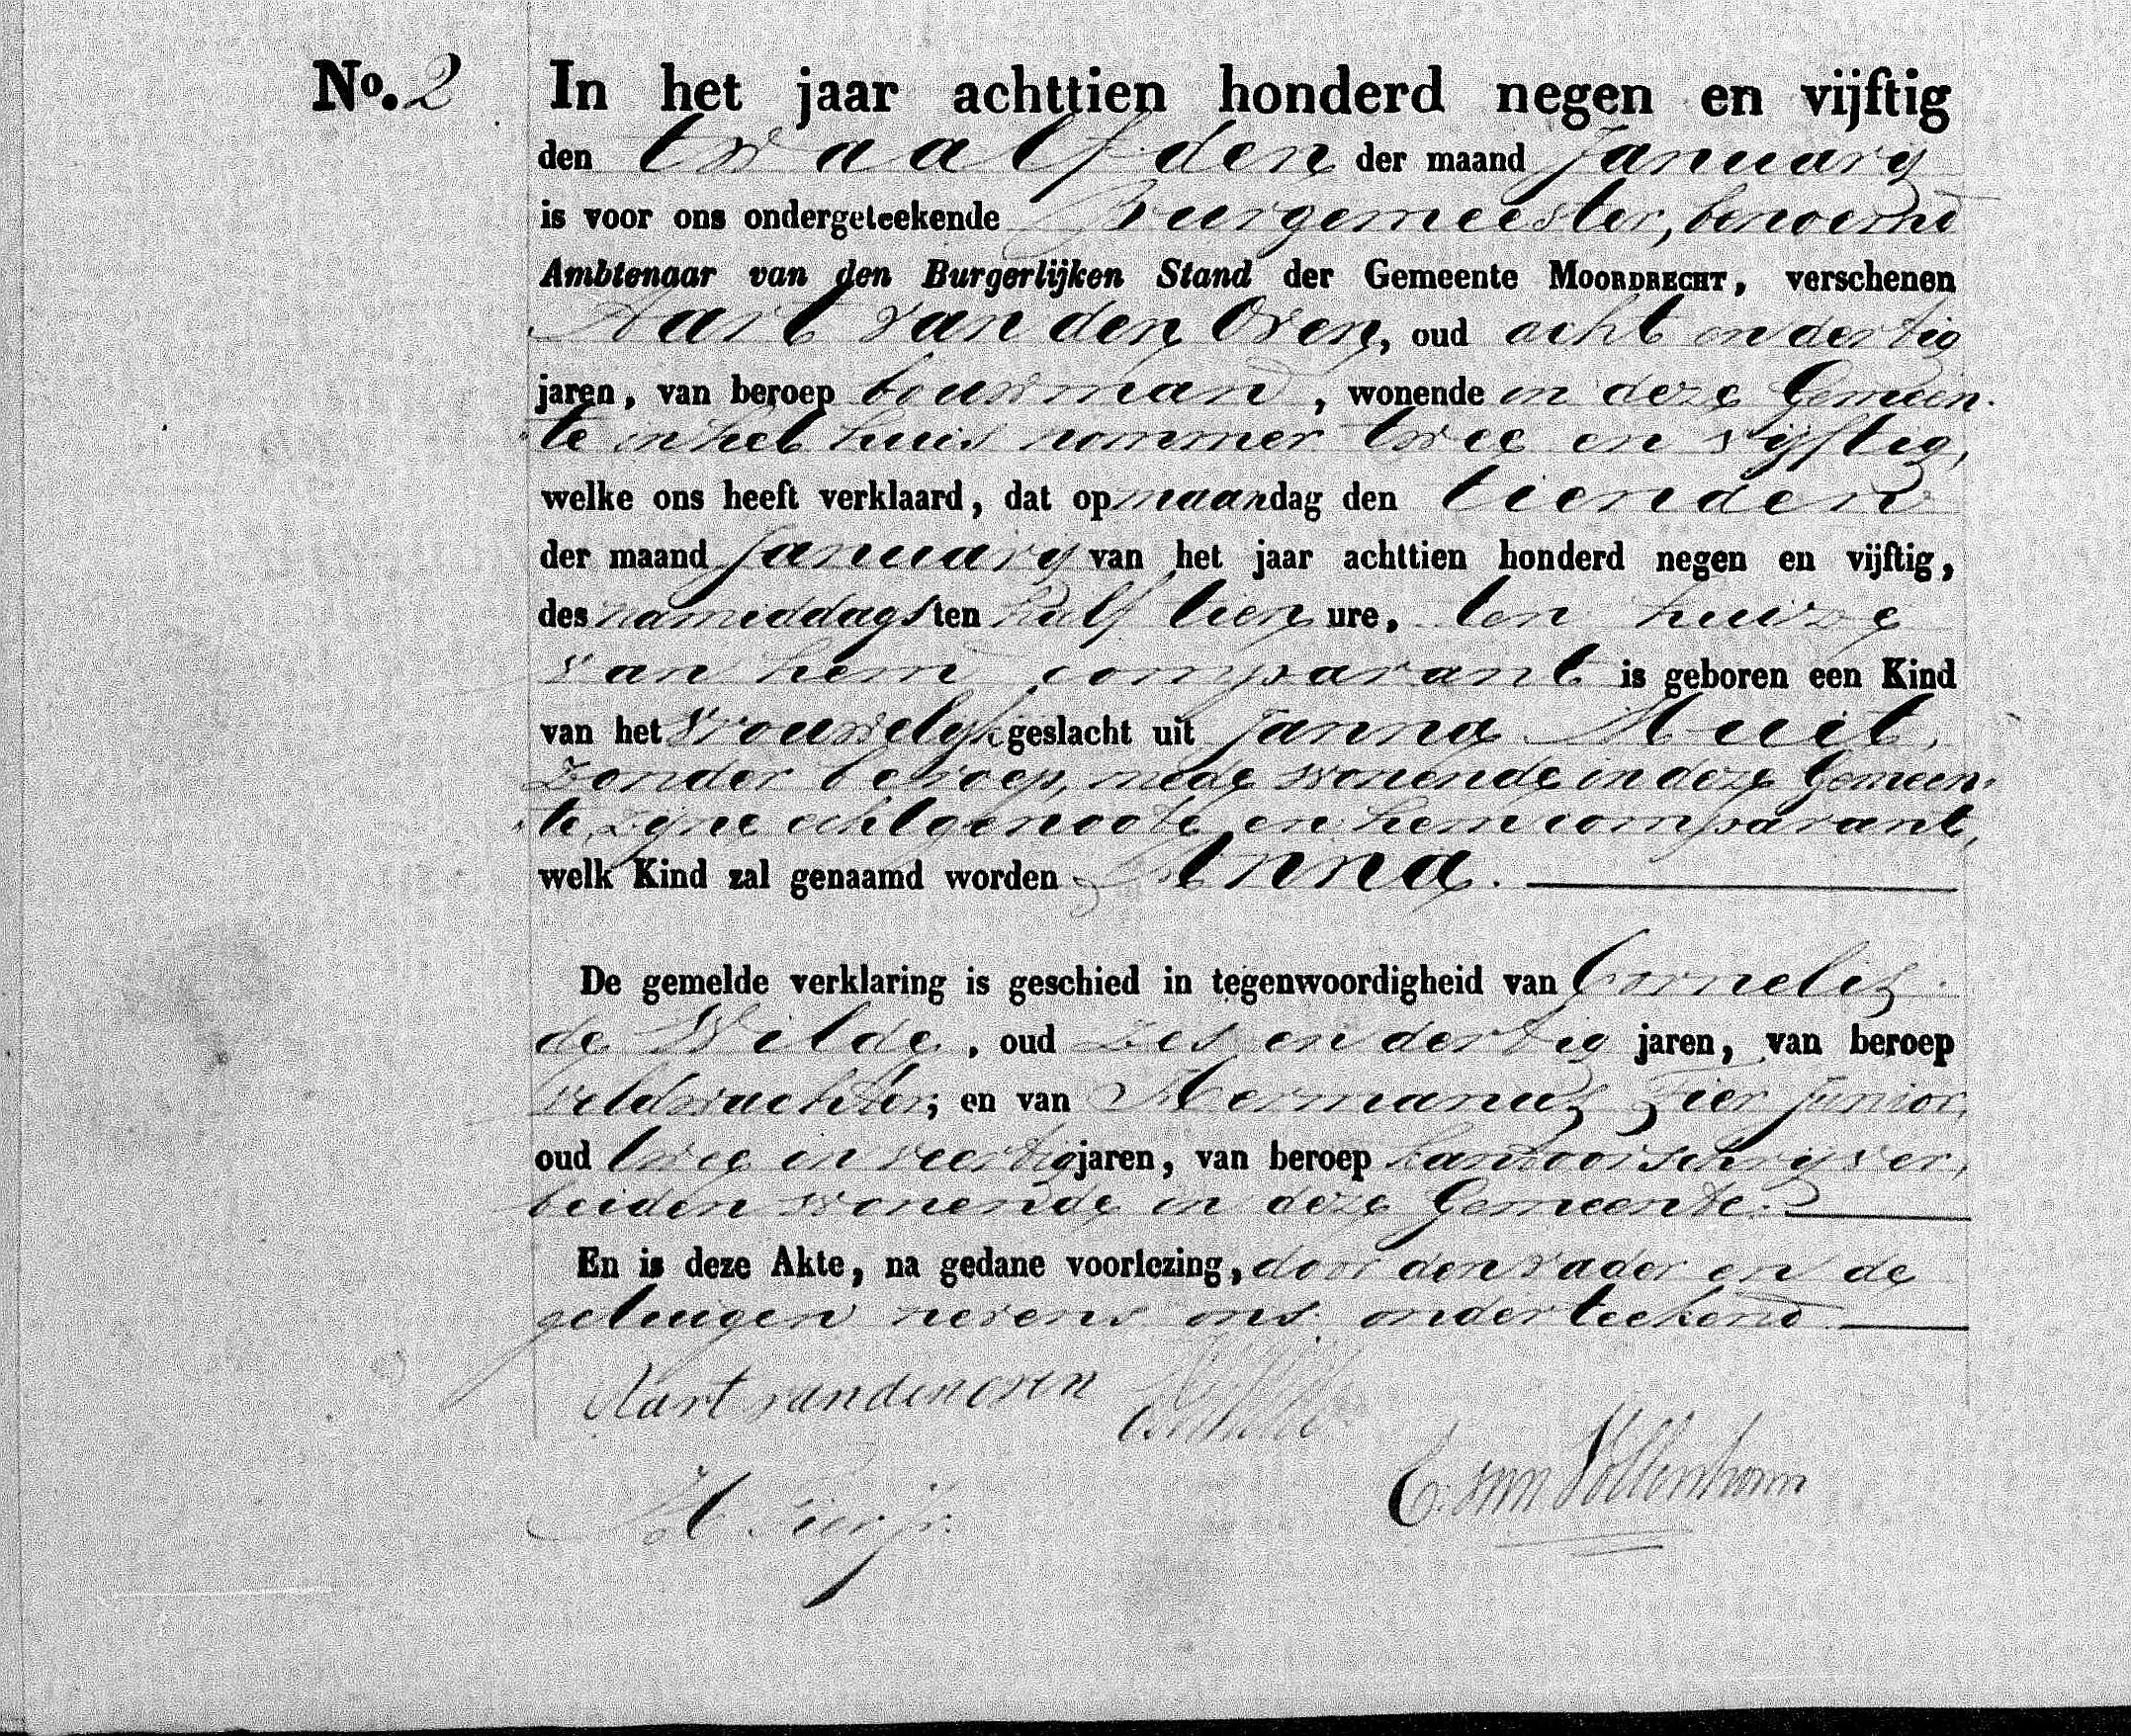 No. 2 In het jaar achttien honderd negen en vijftig
den twaalfden der maand January
is voor ons ondergeteekende Burgemeester, benoemd
Ambtenaar van den Burgerlijken Stand der Gemeente MOORDRECHT, verschenen
Aart van den Oven, oud acht en dertig
jaren, van beroep bouwman, wonende in deze Gemeen-
te in het huis nommer twee en vyftig,
welke ons heeft verklaard, dat op maandag den tienden
der maand January van het jaar achttien honderd negen en vijftig,
des namiddags ten half tien ure, ten huize
van hem comparant is geboren een Kind
van het vrouwelyk geslacht uit Janna Muit,
zonder beroep, mede wonende in deze Gemeen-
te, zyne echtgenoote en hem comparant,
welk Kind zal genaamd worden Anna.
De gemelde verklaring is geschied in tegenwoordigheid van Cornelis
de Wilde, oud zes en dertig jaren, van beroep
veldwachter; en van Hermanus Fier Junior,
oud twee en veertig jaren, van beroep kantoorschryver,
beiden wonende in deze Gemeente.
En is deze Akte, na gedane voorlezing, door den vader en de
getuigen nevens ons onderteekend
Aart van den oven
H Fier Jr.
C. van Vollenhoven